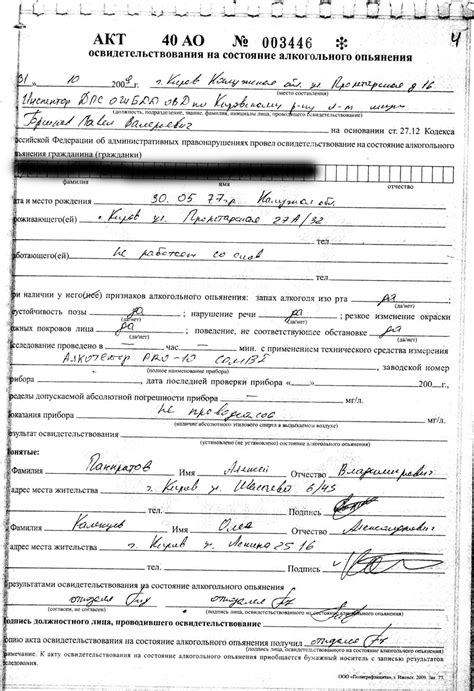 4
АКТ 40 АО № 003446 *
освидетельствования на состояние алкогольного опьянения
31 10 2009 г. Киров Калужская обл. ул. Пролетарская д 16
(место составления)
Инспектор ДПС ОГИБДД ОВД по Кировскому р-ну л-т милиции
(должность, подразделение, звание, фамилия, инициалы лица, проводившего освидетельствование)
Павел Валерьевич на основании ст. 27.12 Кодекса
оссийской Федерации об административных правонарушениях провел освидетельствование на состояние алкогольного
опьянения гражданина (гражданки)
фамилия имя отчество
ата и место рождения 30.05 77 р. Калужская обл.
роживающего(ей) г. Киров ул. Пролетарская 27А/32
тел
аботающего(ей) не работает со слов
тел.
ри наличии у него(неё) признаков алкогольного опьянения: запах алкоголя изо рта да
(да/нет)
еустойчивость позы да ; нарушение речи да ; резкое изменение окраски
(да/нет) (да/нет)
ожных покровов лица да ; поведение, не соответствующее обстановке да
(да/нет) (да/нет)
сследование проведено в — час — мин. с применением технического средства измерения
Алкотектор PRO-10 COMBI , заводской номер
(полное наименование прибора)
рибора , дата последней проверки прибора « » 200 г.,
ределы допускаемой абсолютной погрешности прибора мг/л.
оказания прибора не проводилось мг/л.
(наличие абсолютного этилового спирта в выдыхаемом воздухе)
езультат освидетельствования
(установлено (не установлено) состояние алкогольного опьянения)
Понятые:
Фамилия Панкратов Имя Алексей Отчество Владимирович
адрес места жительства г. Киров ул. 6/45
тел. Подпись
Фамилия Имя Олег Отчество Александрович
адрес места жительства г. Киров ул. Ленина 25 16
тел. Подпись
результатами освидетельствования на состояние алкогольного опьянения
(согласен, не согласен) (подпись лица, освидетельствованного на состояние алкогольного опьянения)
одпись должностного лица, проводившего освидетельствование
опию акта освидетельствования на состояние алкогольного опьянения получил
(подпись)
римечание. К акту освидетельствования на состояние алкогольного опьянения приобщается бумажный носитель с записью результатов
сследования.
ООО «Полиграфзащита», г. Ижевск. 2009. Зак. 77.